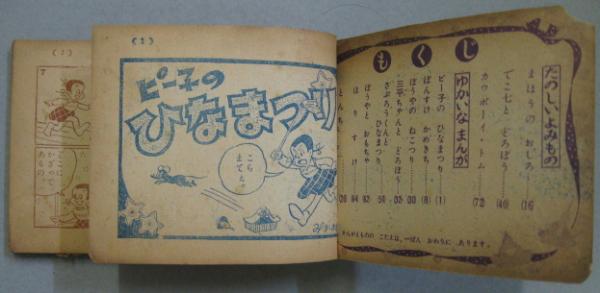 (2)
7
ここに
かざって
あるの
(1)
ピー子の
ひなまつり
こら
まてえ。
もくじ
たのしいよみもの
まほうのおしろ (16)
でこ七と どろぼう (40)
カウボーイ・トム (72)
ゆかいなまんが
ピー子の ひなまつり (1)
ぼんすけ かめきち (8)
ぼうやの ねこつり (30)
三平ちゃんと どろぼう
ざぶろうくんと
ひなまつり
ぼうやと おもちゃ
はりすけ
とんち
まんがえものの こたえは、一ばん おわりに あります。